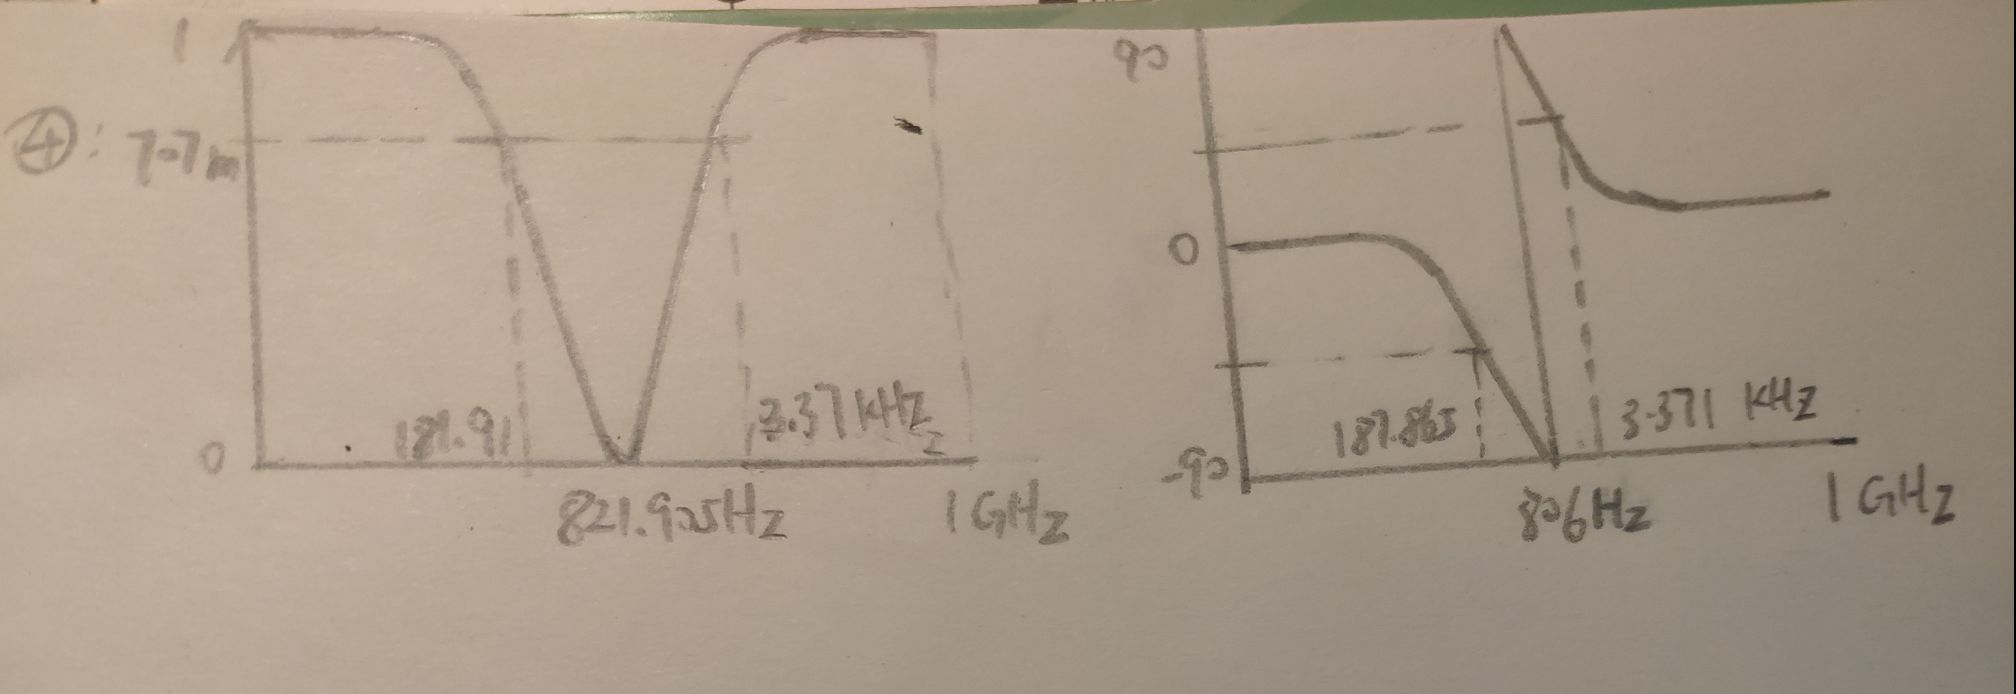 ④:
1
707m
0
187.91
3.37 KHz
821.905Hz
1 GHz
90
0
-90
187.865
3.371 KHz
806Hz
1 GHz